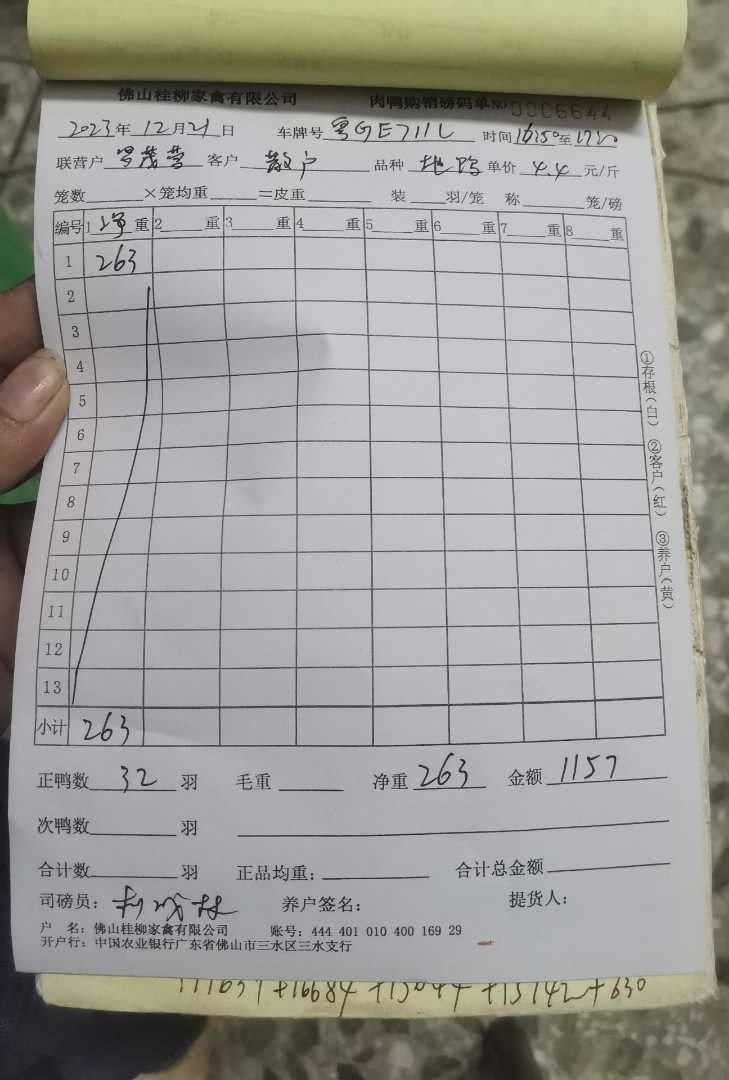 佛山桂柳家禽有限公司 肉鸭购销磅码单 NO 0006644
2023年12月21日 车牌号 粤GE711L 时间16:50至17:20
联营户 客户 散户 品种 单价 4.4 元/斤
笼数 ×笼均重 =皮重 装 羽/笼 称 笼/磅
编号 1 净重 2 重 3 重 4 重 5 重 6 重 7 重 8 重
1 263
2
3
4
5
6
7
8
9
10
11
12
13
小计 263
正鸭数 32 羽 毛重 净重 263 金额 1157
次鸭数 羽
合计数 羽 正品均重: 合计总金额
司磅员: 养户签名: 提货人:
户 名: 佛山桂柳家禽有限公司 账号: 444 401 010 400 169 29
开户行: 中国农业银行广东省佛山市三水区三水支行
①存根(白) ②客户(红) ③养户(黄)
+16684 +15142+630